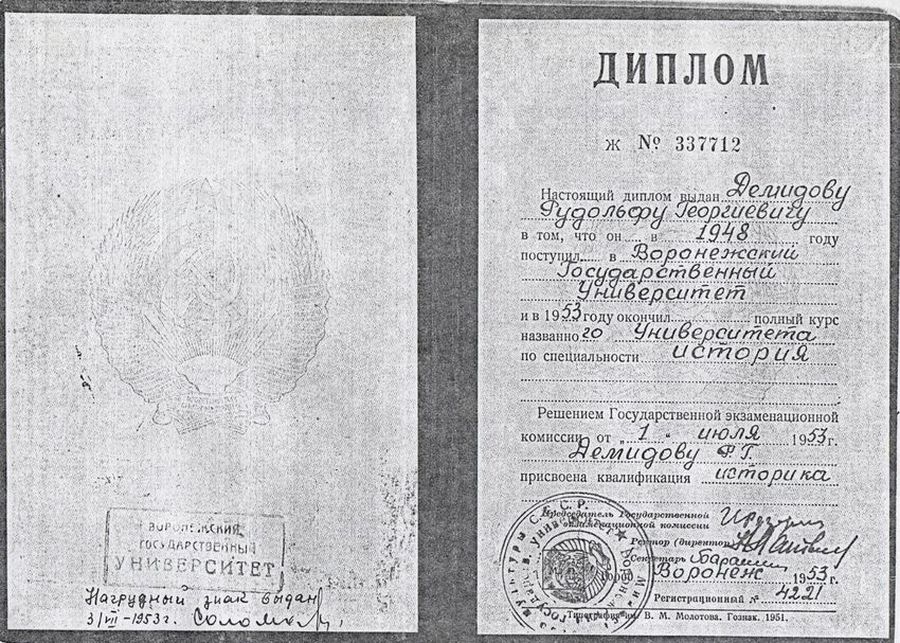 ВОРОНЕЖСКИЙ
ГОСУДАРСТВЕННЫЙ
УНИВЕРСИТЕТ
Нагрудный знак выдан
3/VII-1953г.
ДИПЛОМ
Ж № 337712
Настоящий диплом выдан Демидову
Рудольфу Георгиевичу
в том, что он в 1948 году
поступил в Воронежский
Государственный
Университет
и в 1953 году окончил полный курс
названного Университета
по специальности история
Решением Государственной экзаменационной
комиссии от „1“ июля 1953 г.
Демидову Р.Г.
присвоена квалификация историка
Председатель Государственной
экзаменационной комиссии
Ректор (директор)
Секретарь
Город Воронеж 1953 г.
Регистрационный № 4221
Типография им. В. М. Молотова. Гознак. 1951.